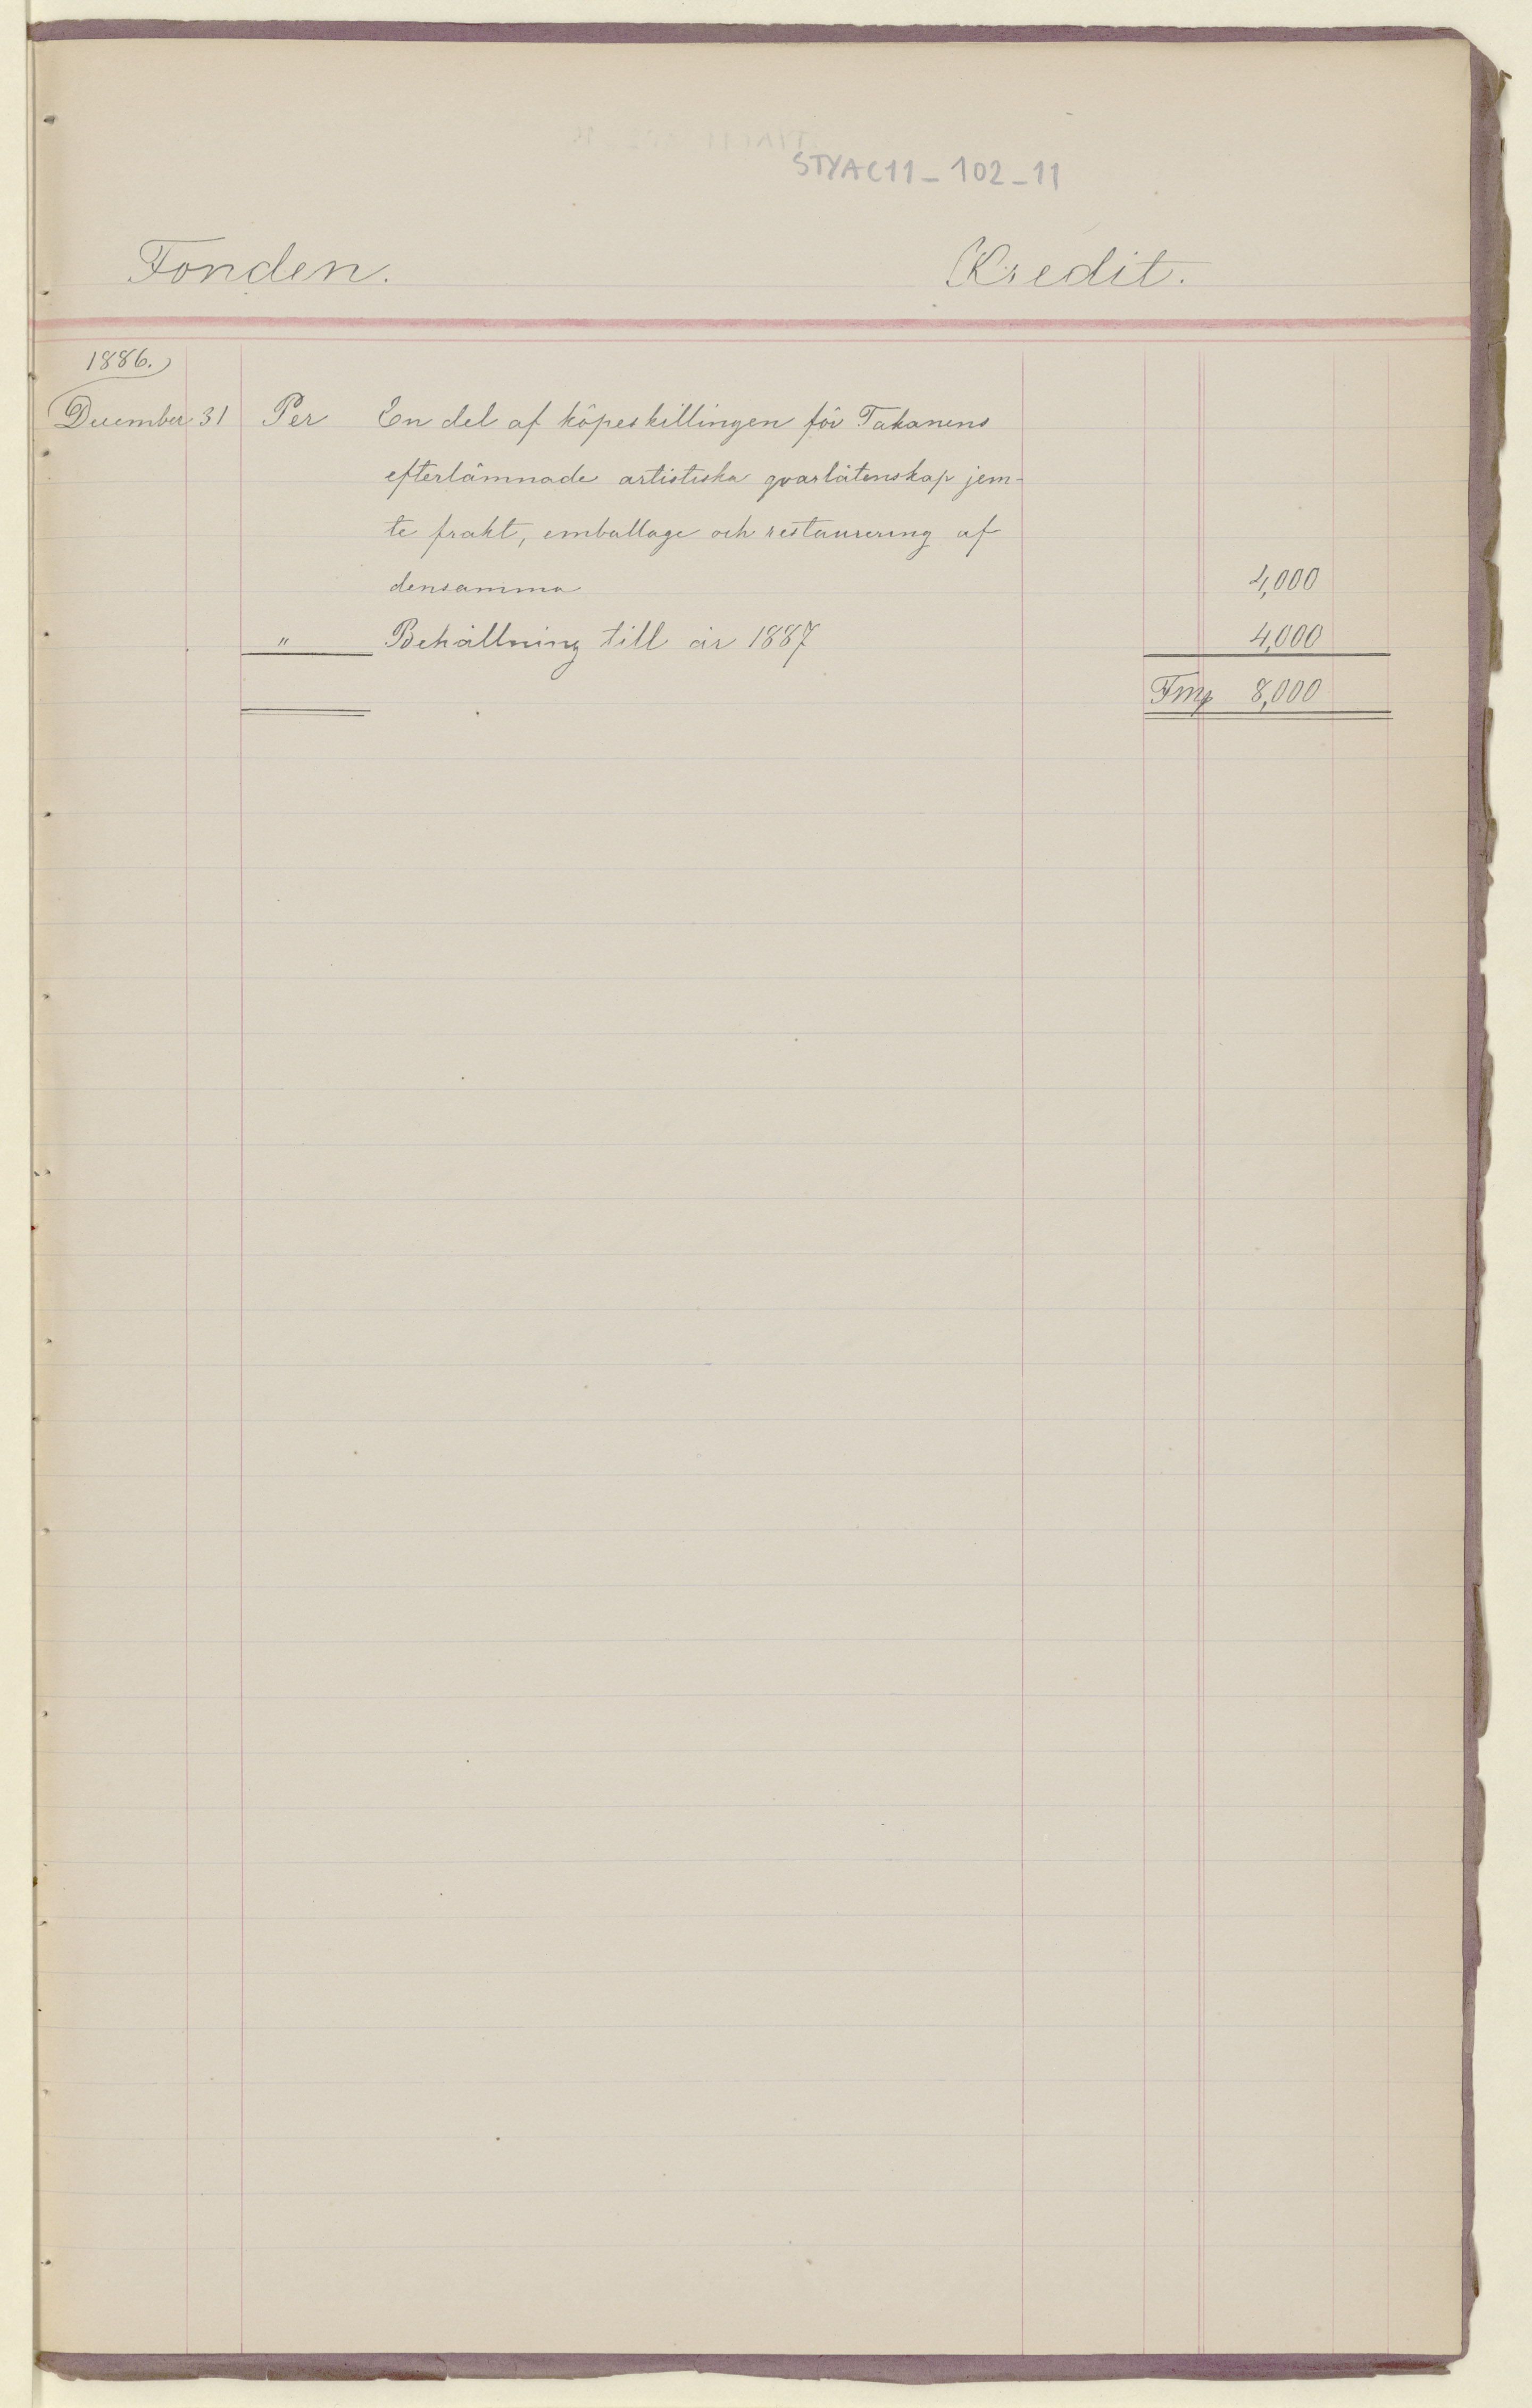 STYAC11_102_11
Fonden. Kredit.
1886.
December 31 Per En del af köpeskillingen för Takanens
efterlämnade artistiska qvarlåtenskap jem-
te frakt, emballage och restaurering af
densamma 4,000
" Behållning till år 1887 4,000
Fmk 8,000